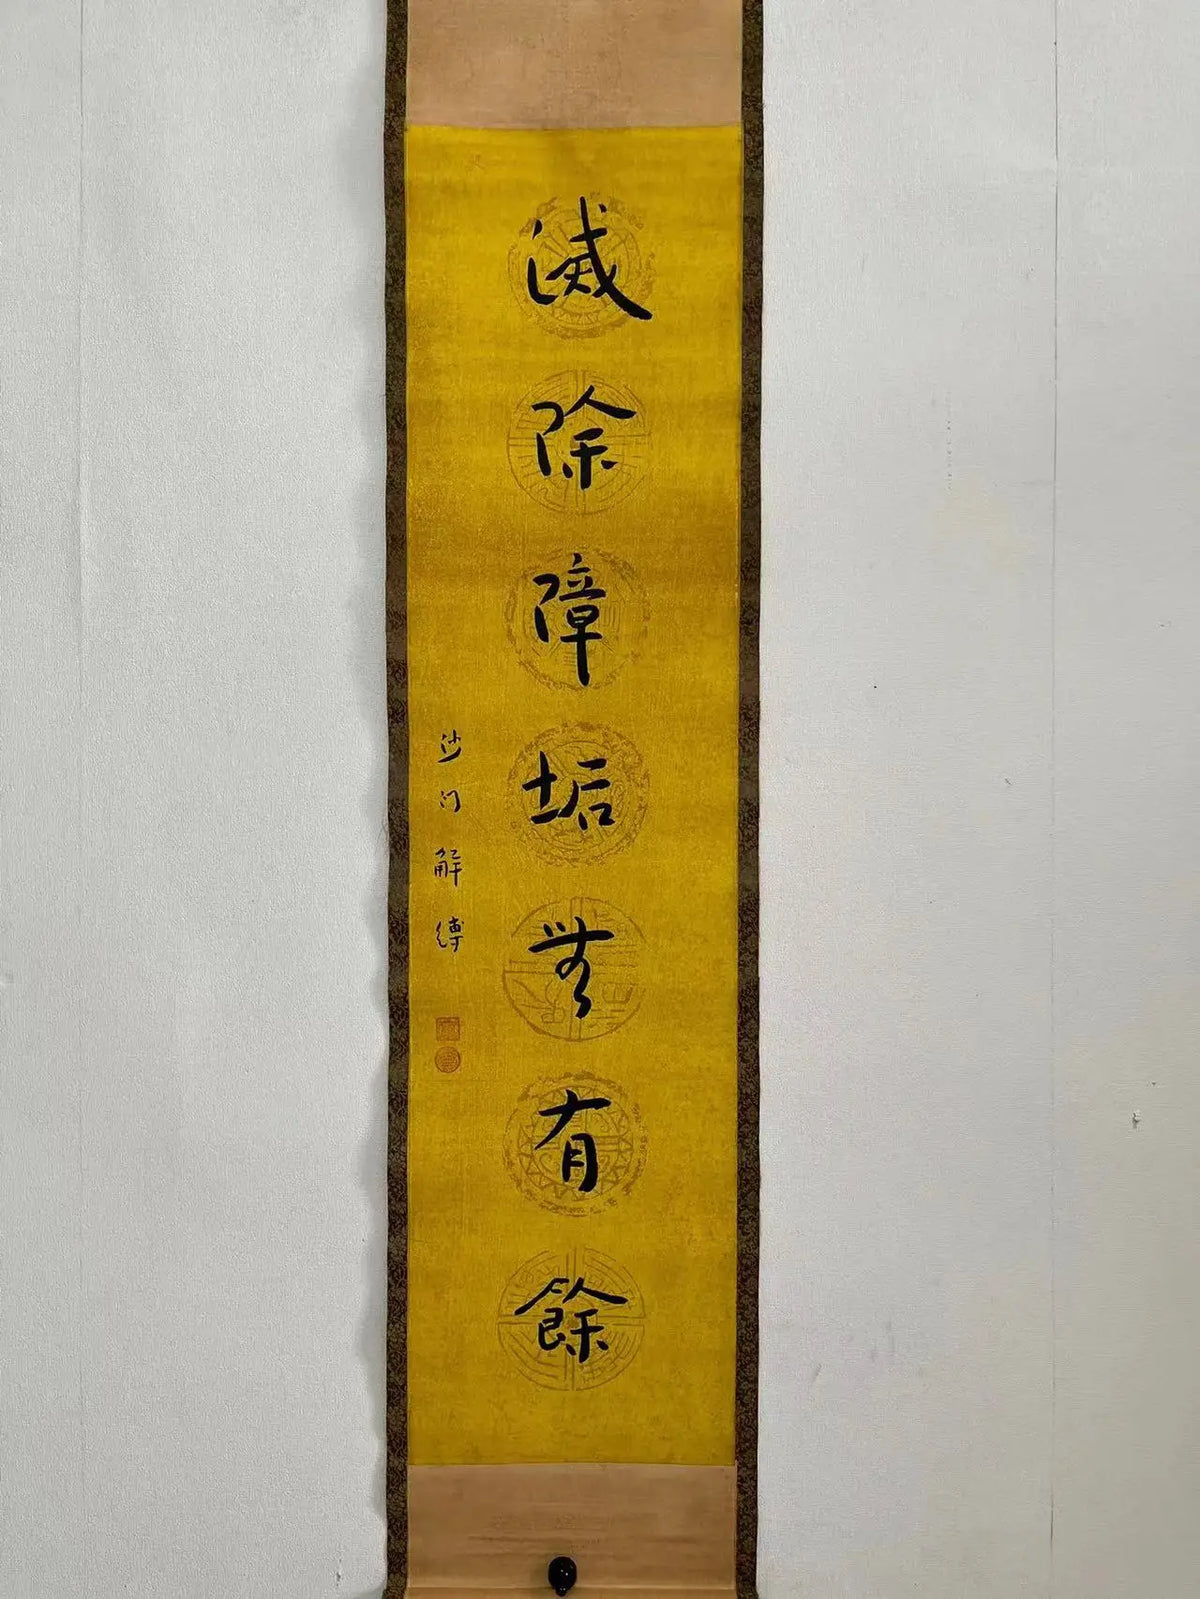 滅除障垢無有餘
沙门解縛